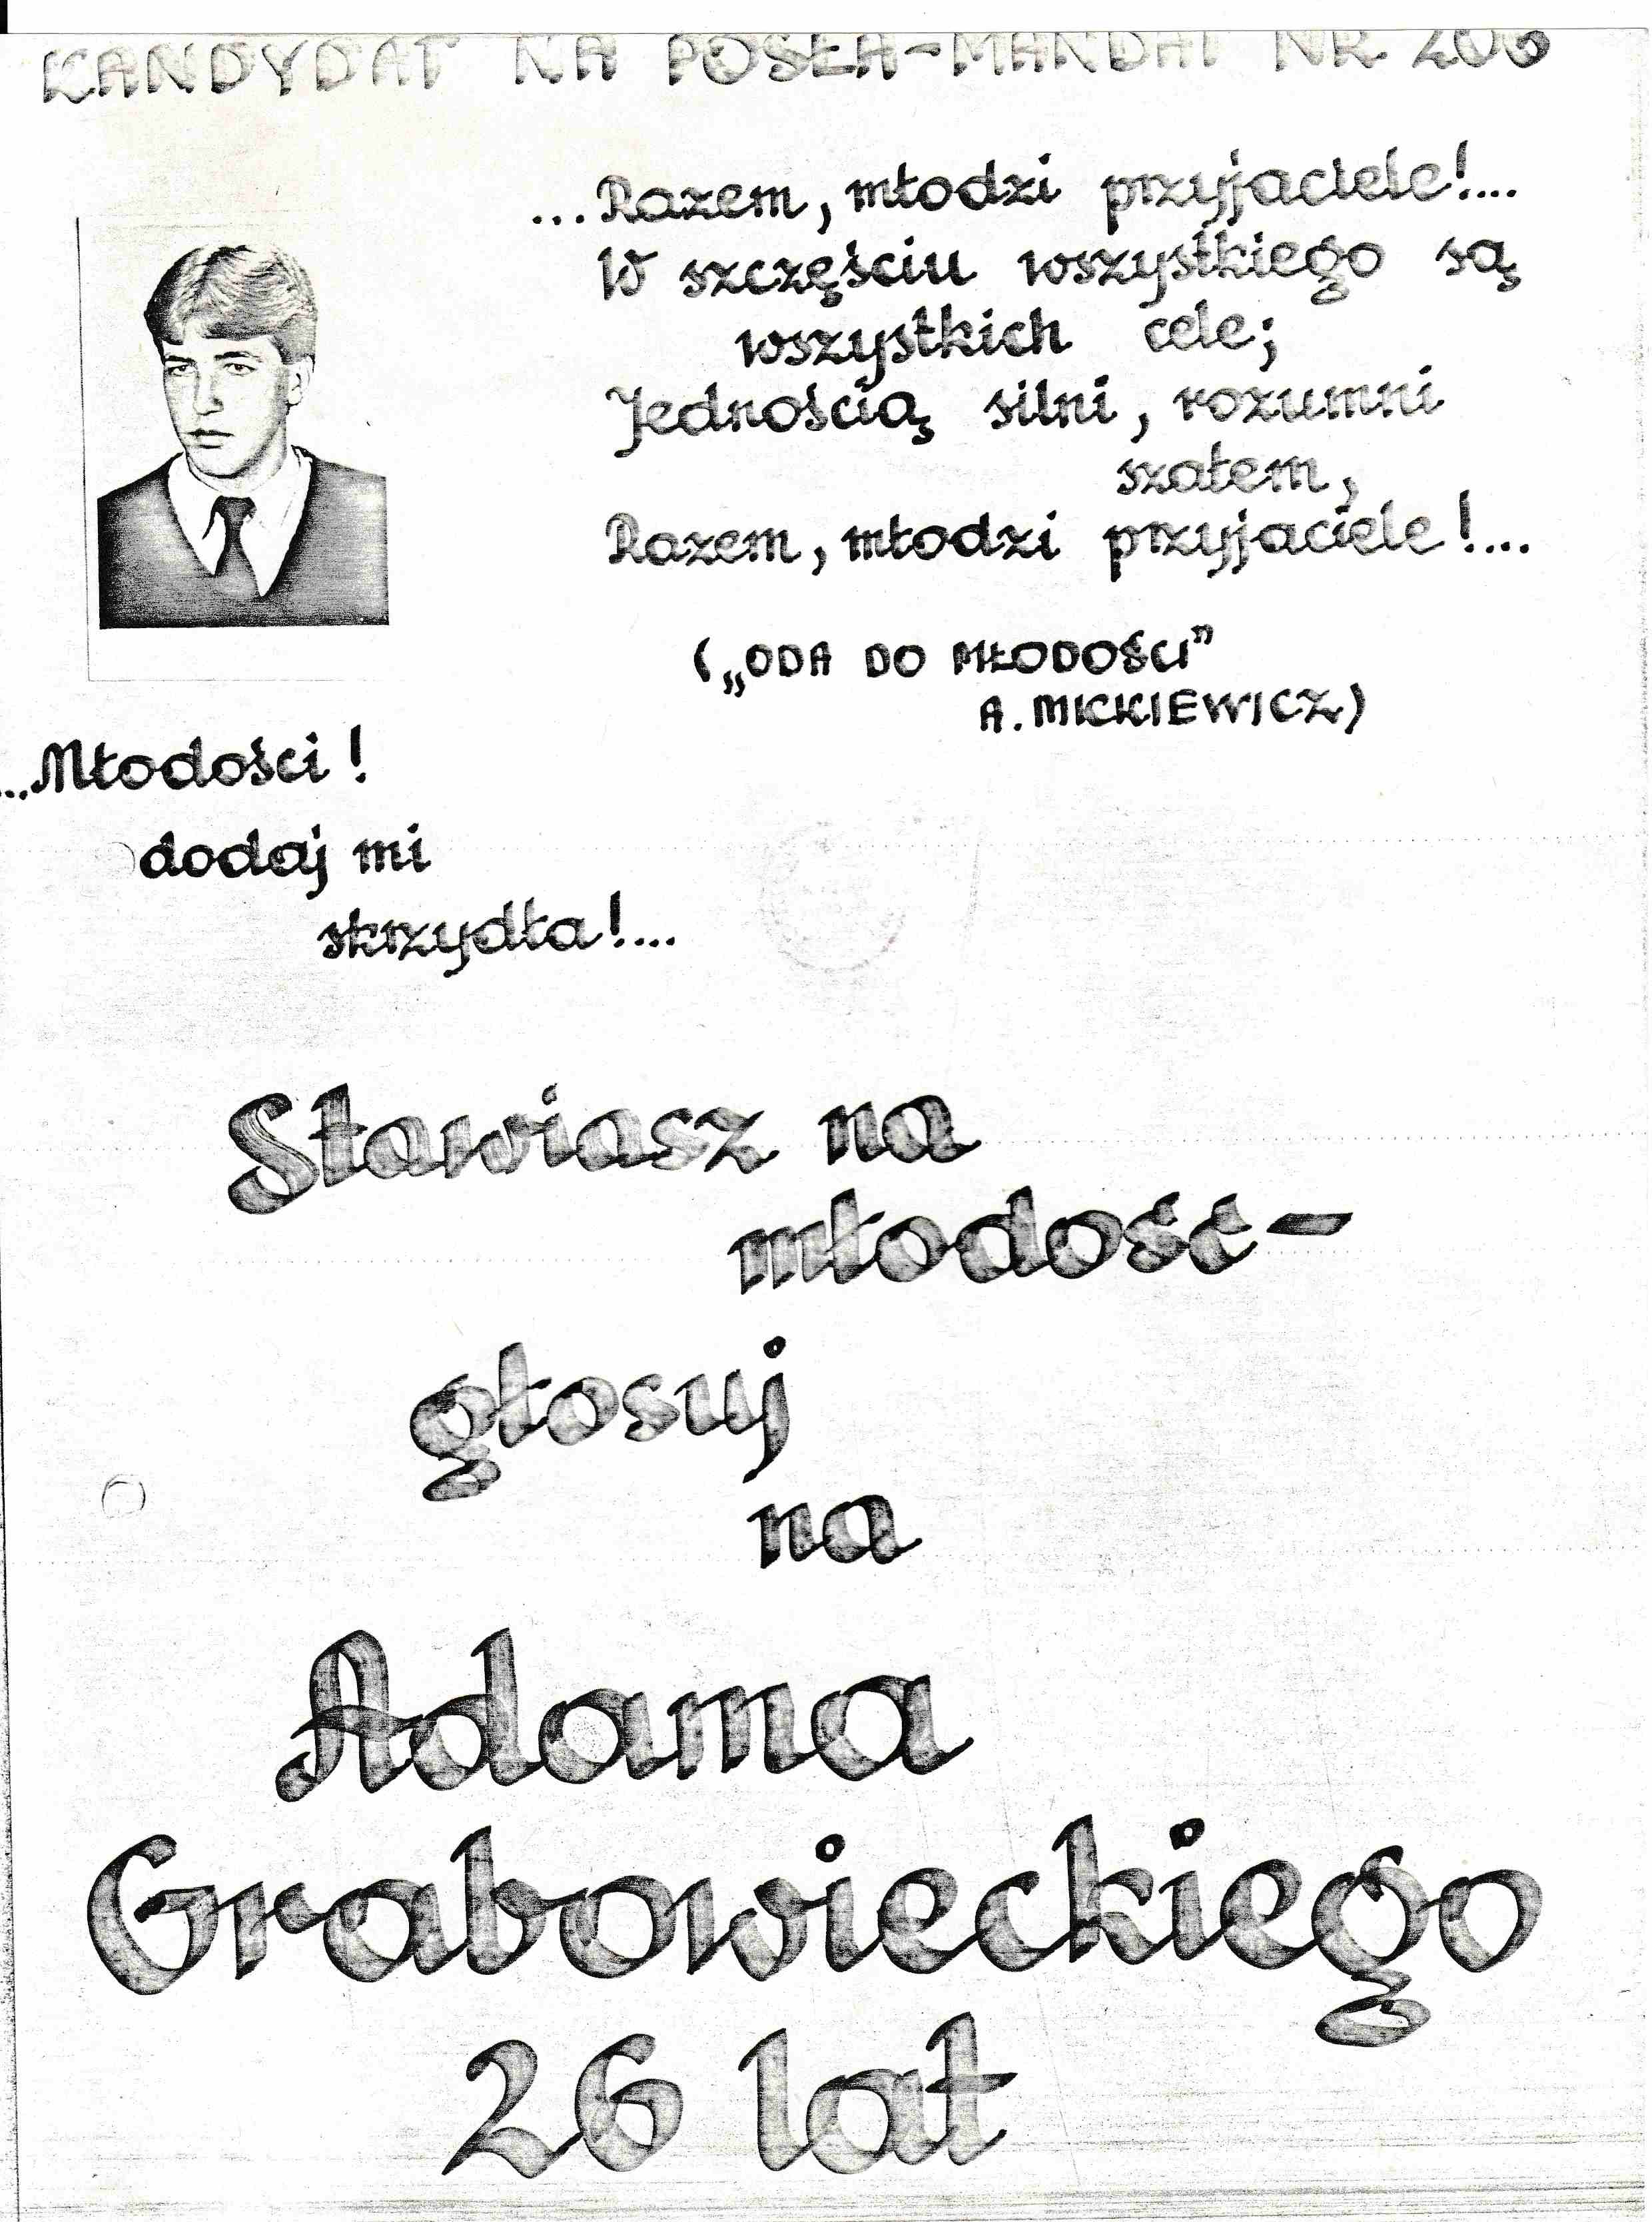 KANDYDAT NA POSŁA-MANDAT NR 206
...Razem, młodzi przyjaciele!...
W szczęściu wszystkiego są
wszystkich cele;
Jednością silni, rozumni
szałem,
Razem, młodzi przyjaciele!...
(„ODA DO MŁODOŚCI”
A. MICKIEWICZ)
...Młodości!
dodaj mi
skrzydła!...
Stawiasz na
młodość-
głosuj
na
Adama
Grabowieckiego
26 lat